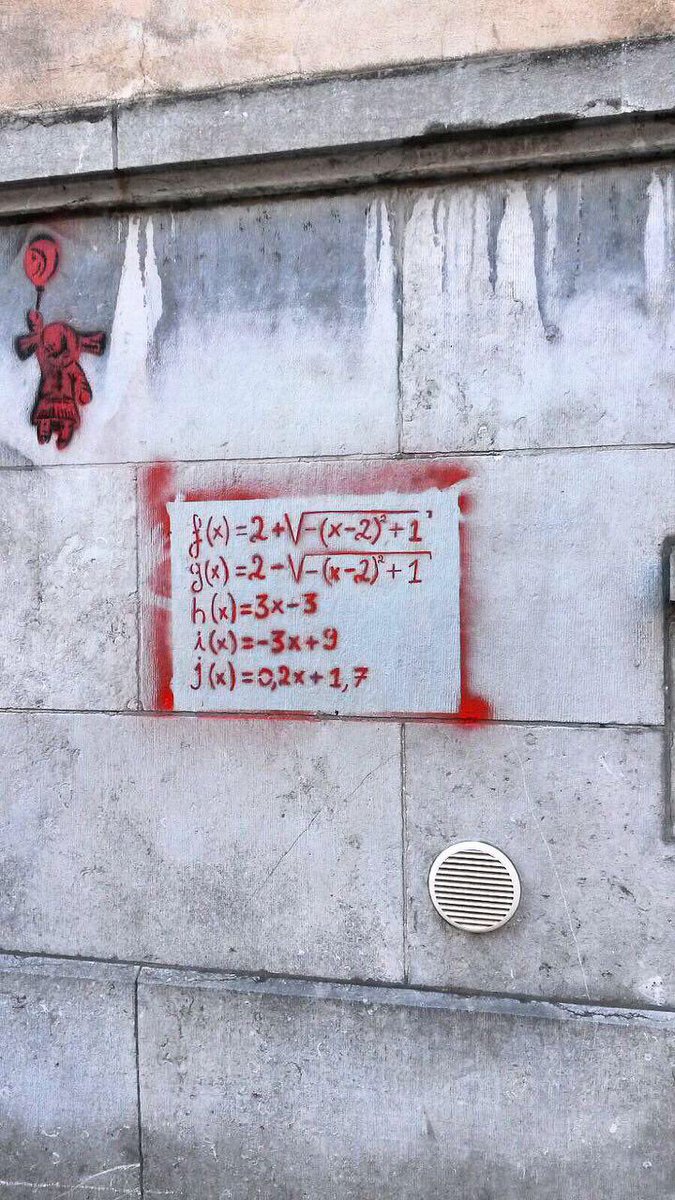 f(x)=2+√-(x-2)²+1
g(x)=2-√-(x-2)²+1
h(x)=3x-3
i(x)=-3x+9
j(x)=0,2x+1,7